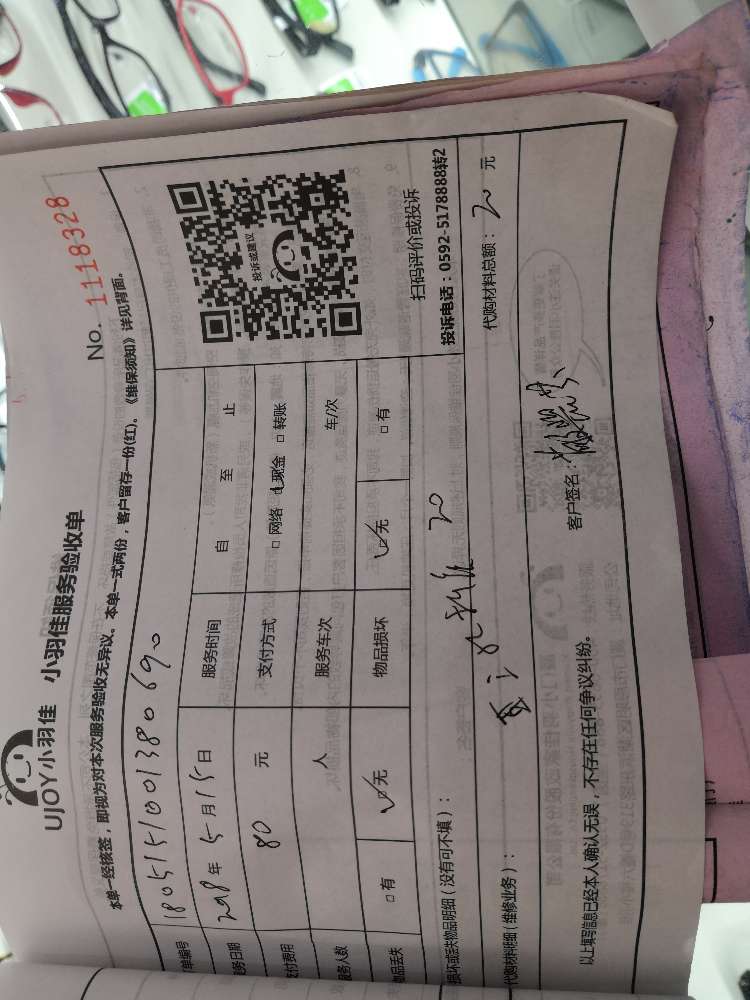 UJOY小羽佳 小羽佳服务验收单
No. 1118328
本单一经核签，即视为对本次服务验收无异议。本单一式两份，客户留存一份(红)。《维保须知》详见背面。
单编号 1805151001380690
务日期 2018年5月15日 服务时间 自 至 止
支付费用 80 元 支付方式 □网络 ☑现金 □转账
服务人数 人 服务车次 车/次
物品丢失 □有 ☑无 物品损坏 ☑无 □有
投诉或建议
扫码评价或投诉
投诉电话：0592-5178888转2
损坏或丢失物品明细（没有可不填）：
代购材料明细（维修业务）： 20
代购材料总额：20 元
以上填写信息已经本人确认无误，不存在任何争议纠纷。
客户签名：